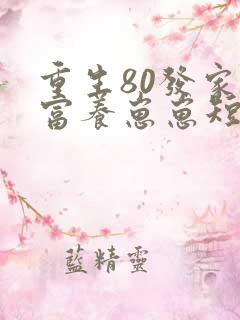 重生80發家
富養崽崽短
藍精靈